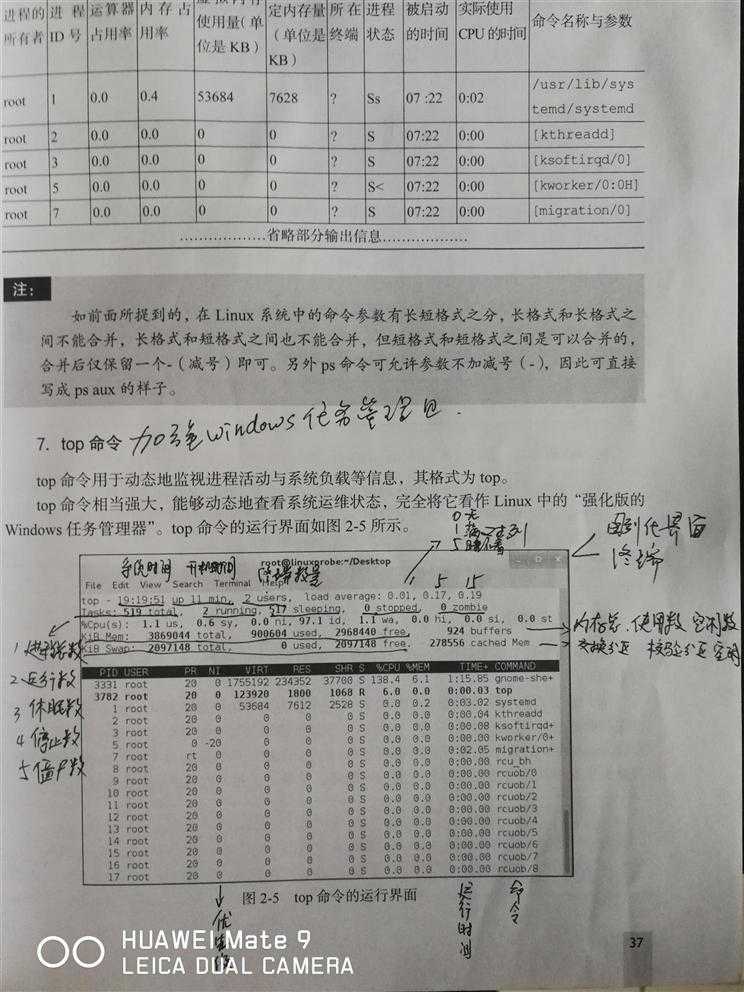 进程的所有者 进程ID号 运算器占用率 内存占用率 使用量(单位是KB) 定内存量(单位是KB) 所在终端 进程状态 被启动的时间 实际使用CPU的时间 命令名称与参数
root 1 0.0 0.4 53684 7628 ? Ss 07 :22 0:02 /usr/lib/systemd/systemd
root 2 0.0 0.0 0 0 ? S 07:22 0:00 [kthreadd]
root 3 0.0 0.0 0 0 ? S 07:22 0:00 [ksoftirqd/0]
root 5 0.0 0.0 0 0 ? S< 07:22 0:00 [kworker/0:0H]
root 7 0.0 0.0 0 0 ? S 07:22 0:00 [migration/0]
………………省略部分输出信息………………
注：
如前面所提到的，在 Linux 系统中的命令参数有长短格式之分，长格式和长格式之
间不能合并，长格式和短格式之间也不能合并，但短格式和短格式之间是可以合并的，
合并后仅保留一个-（减号）即可。另外 ps 命令可允许参数不加减号（-），因此可直接
写成 ps aux 的样子。
7. top 命令 加强windows任务管理
top 命令用于动态地监视进程活动与系统负载等信息，其格式为 top。
top 命令相当强大，能够动态地查看系统运维状态，完全将它看作 Linux 中的“强化版的
Windows 任务管理器”。top 命令的运行界面如图 2-5 所示。
图形化界面
终端
1 5 15
系统时间 开机时间 终端数量
root@linuxprobe:~/Desktop
File Edit View Search Terminal Help
top - 19:19:51 up 11 min, 2 users, load average: 0.01, 0.17, 0.19
Tasks: 519 total, 2 running, 517 sleeping, 0 stopped, 0 zombie
%Cpu(s): 1.1 us, 0.6 sy, 0.0 ni, 97.1 id, 1.1 wa, 0.0 hi, 0.0 si, 0.0 st
KiB Mem: 3869044 total, 900604 used, 2968440 free, 924 buffers
KiB Swap: 2097148 total, 0 used, 2097148 free. 278556 cached Mem
内存总 使用数 空闲数
1 进程总数
2 运行数
3 休眠数
4 停止数
5 僵尸数
PID USER PR NI VIRT RES SHR S %CPU %MEM TIME+ COMMAND
3331 root 20 0 1755192 234352 37700 S 138.4 6.1 1:15.85 gnome-she+
3782 root 20 0 123920 1800 1068 R 6.0 0.0 0:00.03 top
1 root 20 0 53684 7612 2528 S 0.0 0.2 0:03.02 systemd
2 root 20 0 0 0 0 S 0.0 0.0 0:00.04 kthreadd
3 root 20 0 0 0 0 S 0.0 0.0 0:00.08 ksoftirqd+
5 root 0 -20 0 0 0 S 0.0 0.0 0:00.00 kworker/0+
7 root rt 0 0 0 0 S 0.0 0.0 0:02.05 migration+
8 root 20 0 0 0 0 S 0.0 0.0 0:00.00 rcu_bh
9 root 20 0 0 0 0 S 0.0 0.0 0:00.00 rcuob/0
10 root 20 0 0 0 0 S 0.0 0.0 0:00.00 rcuob/1
11 root 20 0 0 0 0 S 0.0 0.0 0:00.00 rcuob/2
12 root 20 0 0 0 0 S 0.0 0.0 0:00.00 rcuob/3
13 root 20 0 0 0 0 S 0.0 0.0 0:00.00 rcuob/4
14 root 20 0 0 0 0 S 0.0 0.0 0:00.00 rcuob/5
15 root 20 0 0 0 0 S 0.0 0.0 0:00.00 rcuob/6
16 root 20 0 0 0 0 S 0.0 0.0 0:00.00 rcuob/7
17 root 20 0 0 0 0 S 0.0 0.0 0:00.00 rcuob/8
图 2-5 top 命令的运行界面
优先级
运行时间
命令
37
HUAWEI Mate 9
LEICA DUAL CAMERA